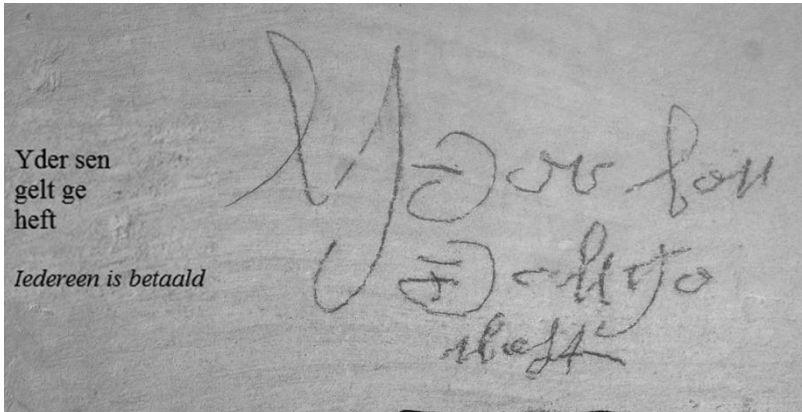 Yder sen
gelt ge
heft
Iedereen is betaald
Yder sen
gelt ge
heft